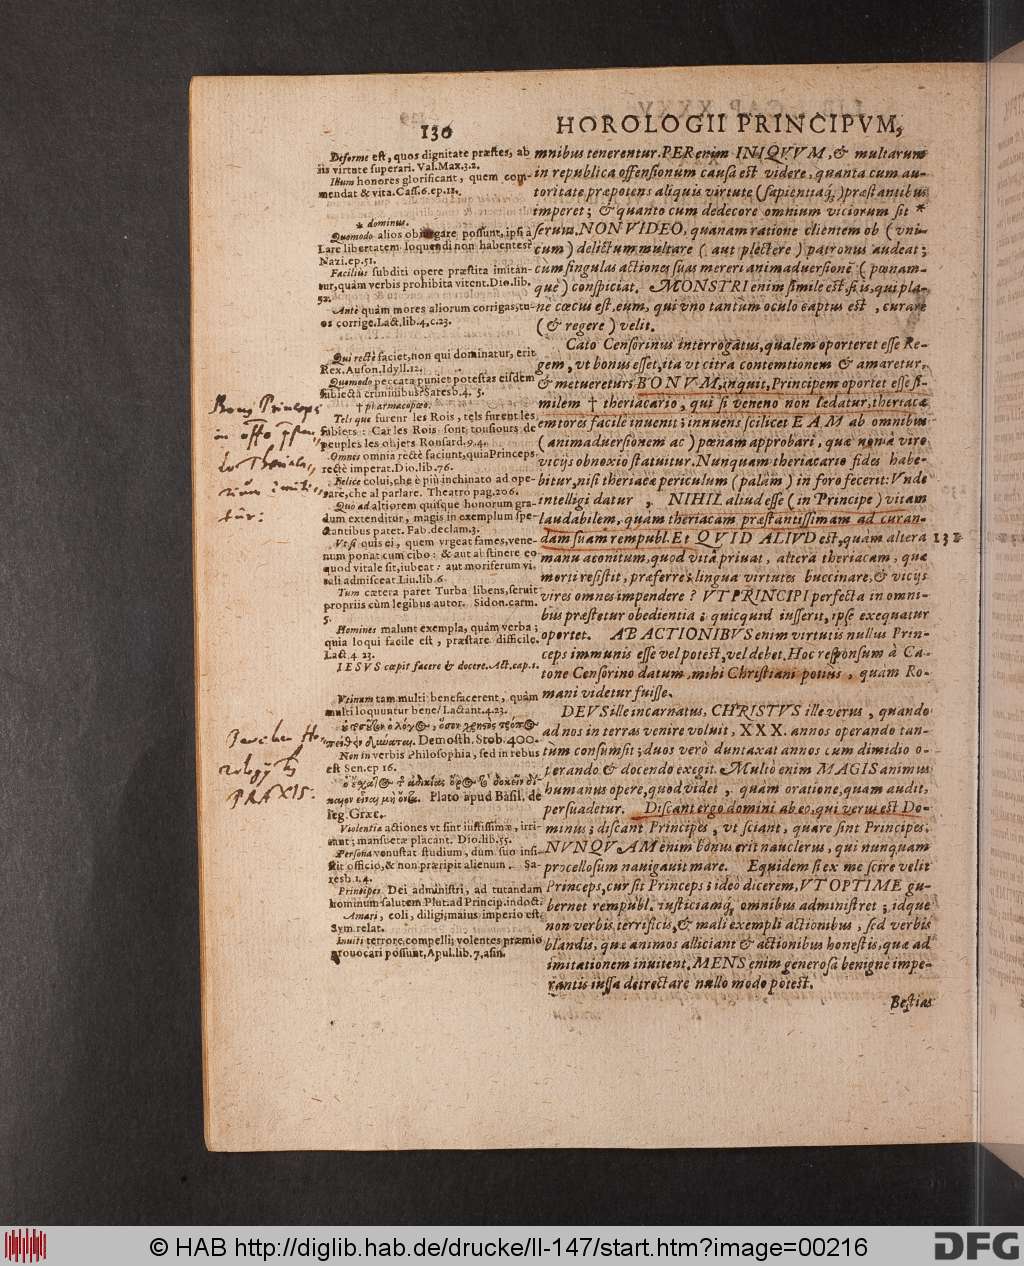 130
HOROLOGII PRINCIPVM,
Deforme est, quos dignitate præstes, ab
iis virtute superari. Val. Max. 3. 2.
Illum honores glorificant, quem com-
mendat & vita. Cass. 6. ep. 12.
* dominus.
Quomodo alios obiurgare possunt, ipsi à
Lare libertatem loquendi non habentes?
Nazi. ep. 51.
Facilius subditi opere præstita imitan-
tur, quàm verbis prohibita vitent. Dio. lib.
52.
Antè quàm mores aliorum corrigas, tu-
os corrige. Lact. lib. 4. c. 23.
Qui rectè faciet, non qui dominatur, erit
Rex. Auson. Idyll. 12.
Quomodo peccata puniet potestas eisdem
subiecta criminibus? Saresb. 4. 5.
† pharmacopœo.
Tels que furent les Rois, tels furent les
subiets: Car les Rois sont tousiours de
peuples les objets Ronsard. 9. 4.
Omnes omnia rectè faciunt, quia Princeps
rectè imperat. Dio. lib. 76.
Felice colui, che è più inchinato ad ope-
rare, che al parlare. Theatro pag. 206.
Quo ad altiorem quisque honorum gra-
dum extenditur, magis in exemplum spe-
ctantibus patet. Fab. declam. 3.
Vt si quis ei, quem vrgeat fames, vene-
num ponat cum cibo: & aut abstinere eo
quod vitale sit, iubeat: aut mortiferum vi-
tali admisceat. Liu. lib. 6
Tum cætera paret Turba libens, seruit
propriis cùm legibus autor. Sidon. carm.
5.
Homines malunt exempla, quàm verba;
quia loqui facile est, præstare difficile.
Lact. 4. 23.
IESVS cœpit facere & docere. Act. cap. 1.
Vtinam tam multi benefacerent, quàm
multi loquuntur bene! Lactant. 4. 23.
Demosth. Stob. 400.
Non in verbis Philosophia, sed in rebus
est Sen. ep 16.
Plato apud Basil. de
leg. Græc.
Violentia actiones vt sint iustissimæ, irri-
tant; mansuetæ placant. Dio. lib. 55.
Persona venustat studium, dum suo insi-
stit officio, & non præripit alienum. Sa-
resb. 1. 4.
Principes Dei administri, ad tutandam
hominum salutem Plut. ad Princip. indoct.
Amari, coli, diligi, maius imperio est,
Sym. relat.
Inuiti terrore compelli; volentes præmio
prouocari possunt, Apul. lib. 7. asin.
Bonus Princeps
in
Theriaca-
PRAXIS.
mnibus tenerentur. PER enim INIQVVM, & multarum
in republica offensionum causa est videre, quanta cum au-
toritate præpotens aliquis virtute (sapientiaq́;) præstantibus
imperet; & quanto cum dedecore omnium viciorum sit *
seruus. NON VIDEO, quanam ratione clientem ob (vni-
cum) delictum multare (aut plectere) patronus audeat;
cum singulas actiones suas mereri animaduersionē (pœnam-
que) conspiciat. MONSTRI enim simile est, si is, qui pla-
nè cœcus est, eum, qui vno tantùm oculo captus est, curare
(& regere) velit.
Cato Censorinus interrogatus, qualem oporteret esse Re-
gem, vt bonus esset, ita vt citra contemtionem & amaretur,
& metueretur: BONVM, inquit, Principem oportet esse si-
milem † theriacario, qui si veneno non lædatur, theriacæ
emtores facilè inuenit; innuens scilicet EAM ab omnibus
(animaduersionem ac) pœnam approbari, quæ non à viro
vicijs obnoxio statuitur. Nunquam theriacario fides habe-
bitur, nisi theriacæ periculum (palàm) in foro fecerit: Vnde
intelligi datur, NIHIL aliud esse (in Principe) vitam
laudabilem, quam theriacam præstantissimam ad curan-
dam suam rempubl. Et QVID ALIVD est, quàm altera
131
manu aconitum, quod vitâ priuat, alterâ theriacam, quæ
morti resistit, præferre; linguâ virtutes buccinare, & vicijs
vires omnes impendere? VT PRINCIPI perfecta in omni-
bus præstetur obedientia; quicquid iusserit, ipse exequatur
oportet. AB ACTIONIBVS enim virtutis nullus Prin-
ceps immunis esse vel potest, vel debet. Hoc responsum à Ca-
tone Censorino datum, mihi Christiani potiùs, quàm Ro-
mani videtur fuisse.
DEVS ille incarnatus, CHRISTVS ille verus, quando
ad nos in terras venire voluit, XXX. annos operando tan-
tùm consumsit; duos verò duntaxat annos cum dimidio o-
perando & docendo exegit. Multò enim MAGIS animus
humanus opere, quod videt, quàm oratione, quam audit,
persuadetur. Discant ergo domini ab eo, qui verus est Do-
minus; discant Principes, vt sciant, quare sint Principes.
NVNQVAM enim bonus erit nauclerus, qui nunquam
procellosum nauigauit mare. Equidem si ex me scire velit
Princeps, cur sit Princeps; ideò dicerem, VT OPTIME gu-
bernet rempubl. iusticiamq́; omnibus administret; idque
non verbis terrificis, & mali exempli actionibus, sed verbis
blandis, quæ animos alliciant & actionibus honestis, quæ ad
imitationem inuitent. MENS enim generosa benignè impe-
rantis iussa detrectare nullo modo potest.
Bestias
© HAB http://diglib.hab.de/drucke/ll-147/start.htm?image=00216
DFG